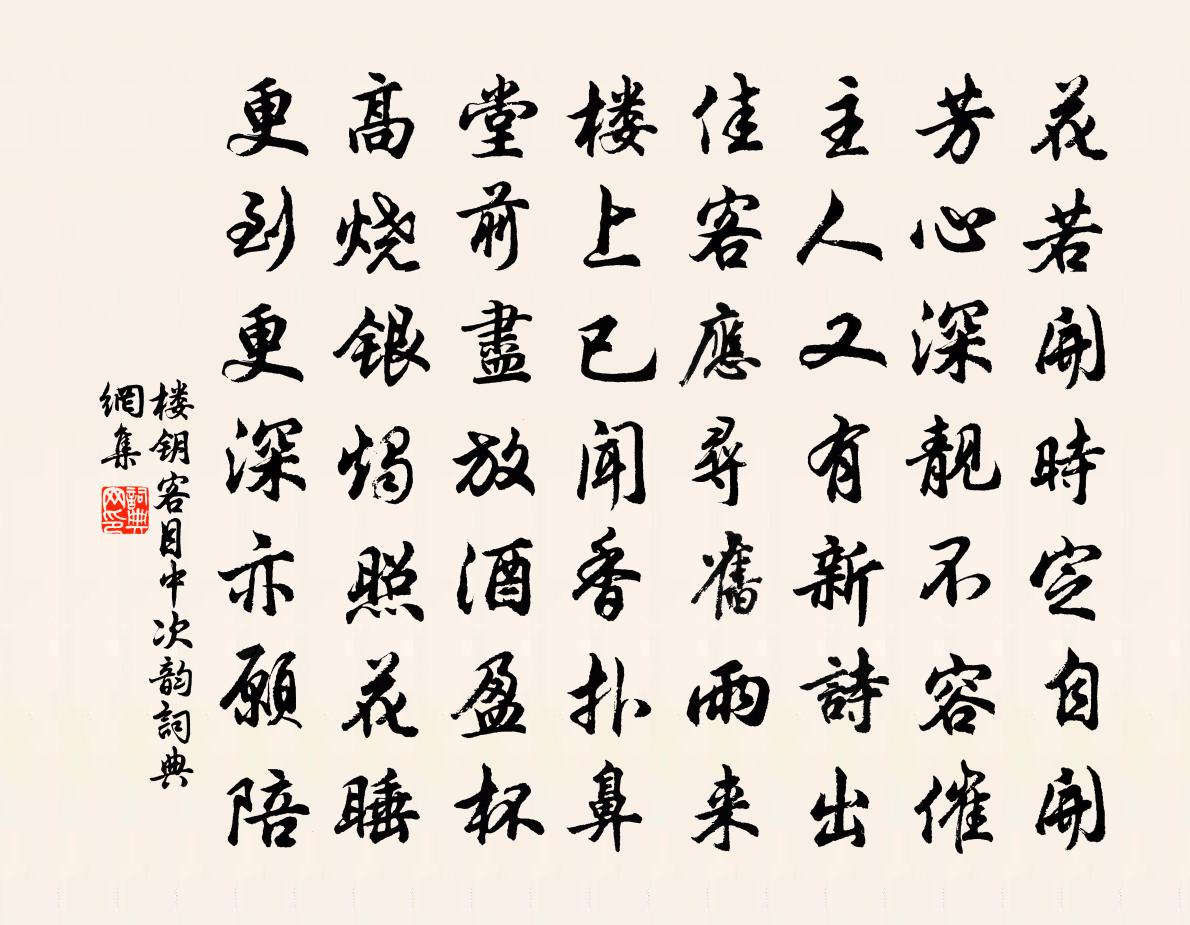 花若開時定自開
芳心深靚不容催
主人又有新詩出
佳客應尋舊雨来
楼上已聞香扑鼻
堂前盡放酒盈杯
高烧银烛照花睡
更到更深亦願陪
楼钥客目中次韵詞典
網集
詞典
网印